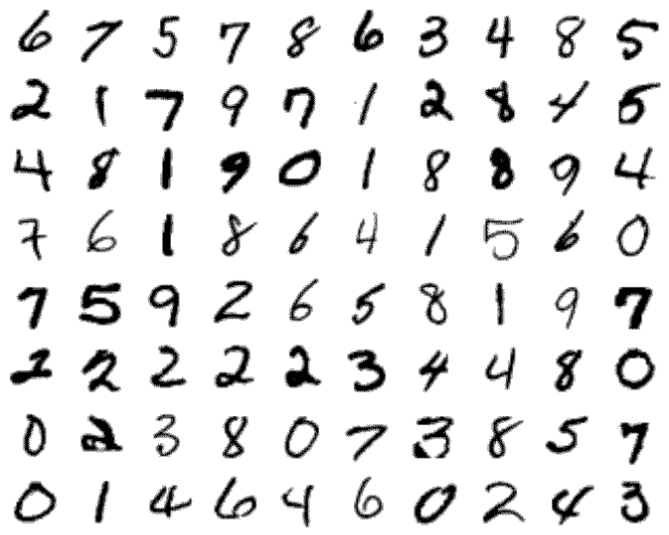 6 7 5 7 8 6 3 4 8 5
2 1 7 9 7 1 2 8 4 5
4 8 1 9 0 1 8 8 9 4
7 6 1 8 6 4 1 5 6 0
7 5 9 2 6 5 8 1 9 7
2 2 2 2 2 3 4 4 8 0
0 2 3 8 0 7 3 8 5 7
0 1 4 6 4 6 0 2 4 3